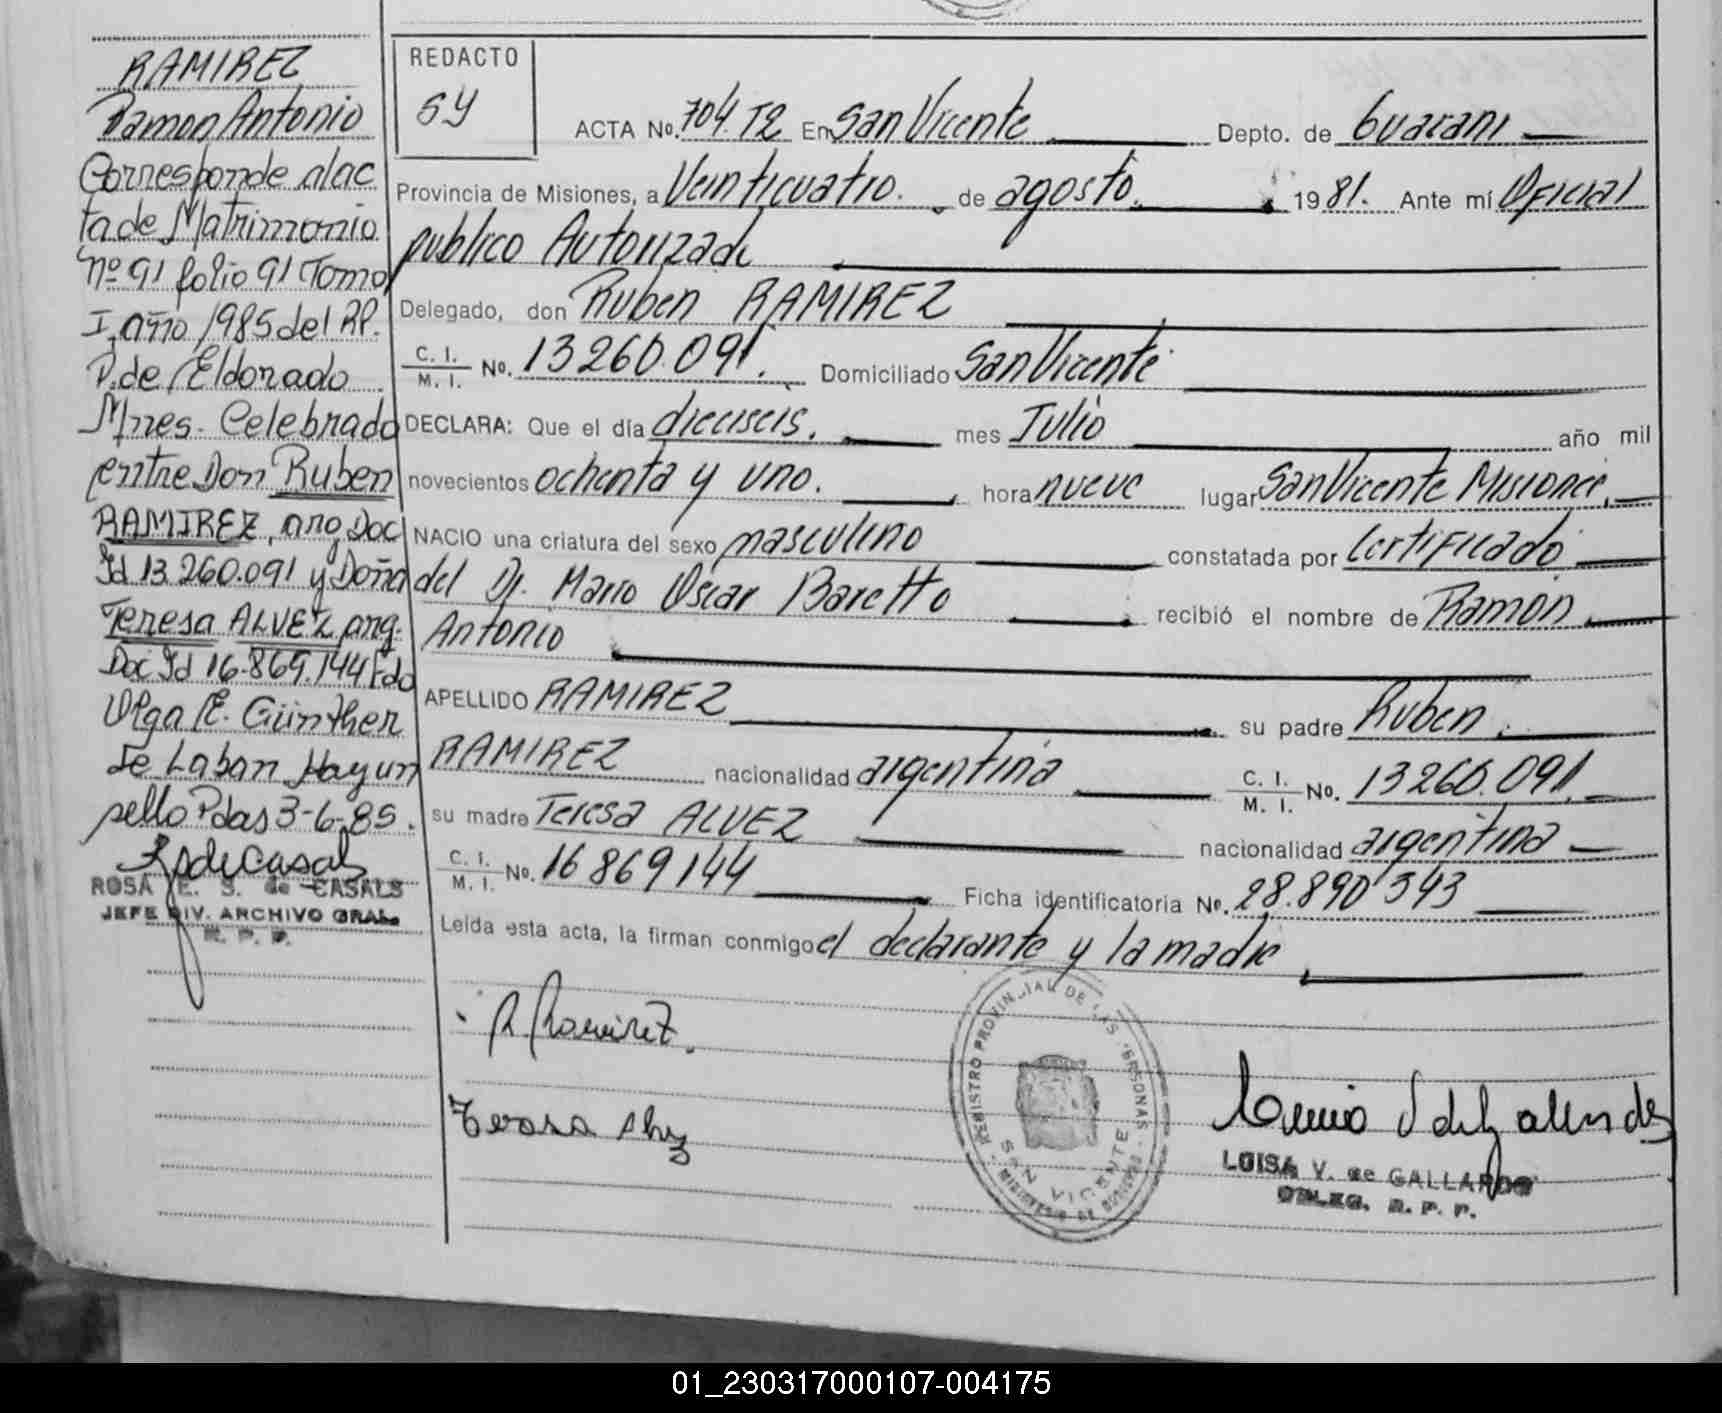 RAMIREZ
Ramon Antonio
Corresponde alac
ta de Matrimonio
nº 91 folio 91 Tomo
I año 1985 del R.P.
P. de Eldorado
Mnes. Celebrado
entre Don Ruben
RAMIREZ, arg, Doc
Id 13.260.091 y Doña
Teresa ALVEZ arg.
Doc Id 16.869.144 Fdo
Olga E. Günther
de Laban Hay un
sello Pdas 3-6-85.
ROSA E. S. de CASALS
JEFE DIV. ARCHIVO GRAL.
R. P. P.
REDACTO
SY
ACTA No. 704. T2 En San Vicente Depto. de Guarani
Provincia de Misiones, a Veinticuatro. de agosto. 1981. Ante mí Oficial
publico Autorizado
Delegado, don Ruben RAMIREZ
C. I. / M. I. No. 13260.091. Domiciliado San Vicente
DECLARA: Que el día dieciseis. mes Julio año mil
novecientos ochenta y uno. hora nueve lugar San Vicente Misiones.
NACIO una criatura del sexo masculino constatada por Certificado
del Dr. Mario Oscar Baretto recibió el nombre de Ramon
Antonio
APELLIDO RAMIREZ su padre Ruben
RAMIREZ nacionalidad argentina C. I. / M. I. No. 13260.091.
su madre Teresa ALVEZ nacionalidad argentina
C. I. / M. I. No. 16869144 Ficha identificatoria No. 28.890 343
Leída esta acta, la firman conmigo el declarante y la madre
R Ramirez.
Teresa Alvez
REGISTRO PROVINCIAL DE LAS PERSONAS
SAN VICENTE
MINISTERIO DE GOBIERNO
LUISA V. de GALLARDO
DELEG. R. P. P.
01_230317000107-004175